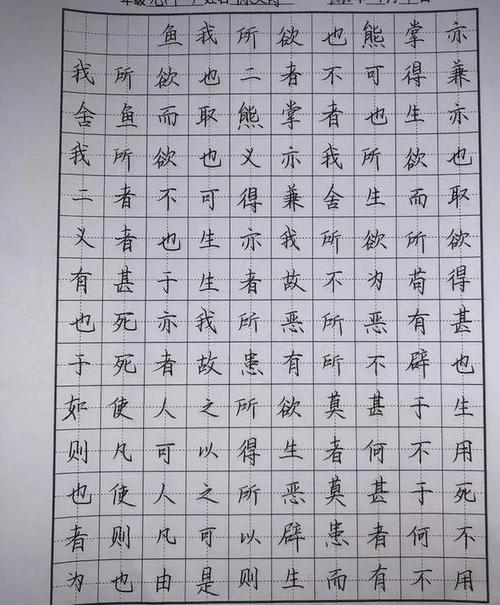 鱼我所欲也熊掌亦
我所欲也二者不可得兼
舍鱼而取熊掌者也生亦
我所欲也义亦我所欲也
二者不可得兼舍生而取
义者也生亦我所欲所欲
有甚于生者故不为苟得
也死亦我所恶所恶有甚
于死者故患有所不辟也
如使人之所欲莫甚于生
则凡可以得生者何不用
也使人之所恶莫甚于死
者则凡可以辟患者何不
为也由是则生而有不用